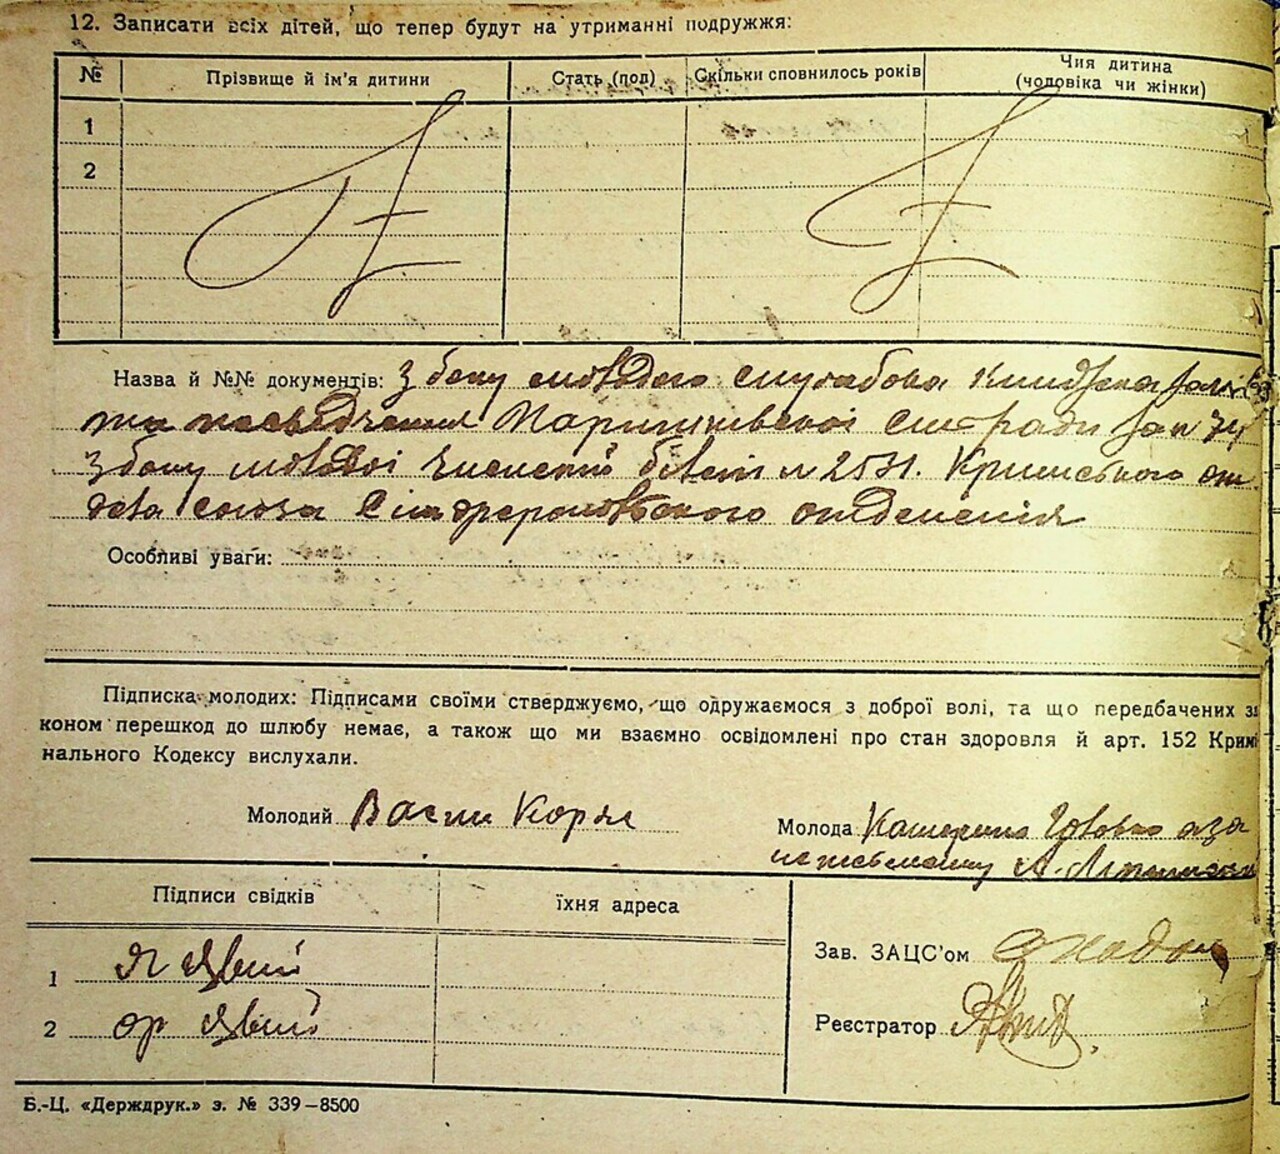 12. Записати всіх дітей, що тепер будут на утриманні подружжя:
№ Прізвище й ім'я дитини Стать (пол) Скільки сповнилось років Чия дитина
(чоловіка чи жінки)
1
2
Назва й №№ документів: З боку молодого службова книжка
та посвідчення сільради за № 74
З боку молодої членский білет № 2531. Кримського от
дела союза Сімферопольского отделенія
Особливі уваги:
Підписка молодих: Підписами своїми стверджуємо, що одружаємося з доброї волі, та що передбачених за
коном перешкод до шлюбу немає, а також що ми взаємно освідомлені про стан здоровля й арт. 152 Кримі
нального Кодексу вислухали.
Молодий Васил
Молода Катерина а за
неписьменну А.
Підписи свідків їхня адреса
1
2
Зав. ЗАЦС'ом
Реєстратор
Б.-Ц. «Держдрук.» з. № 339–8500